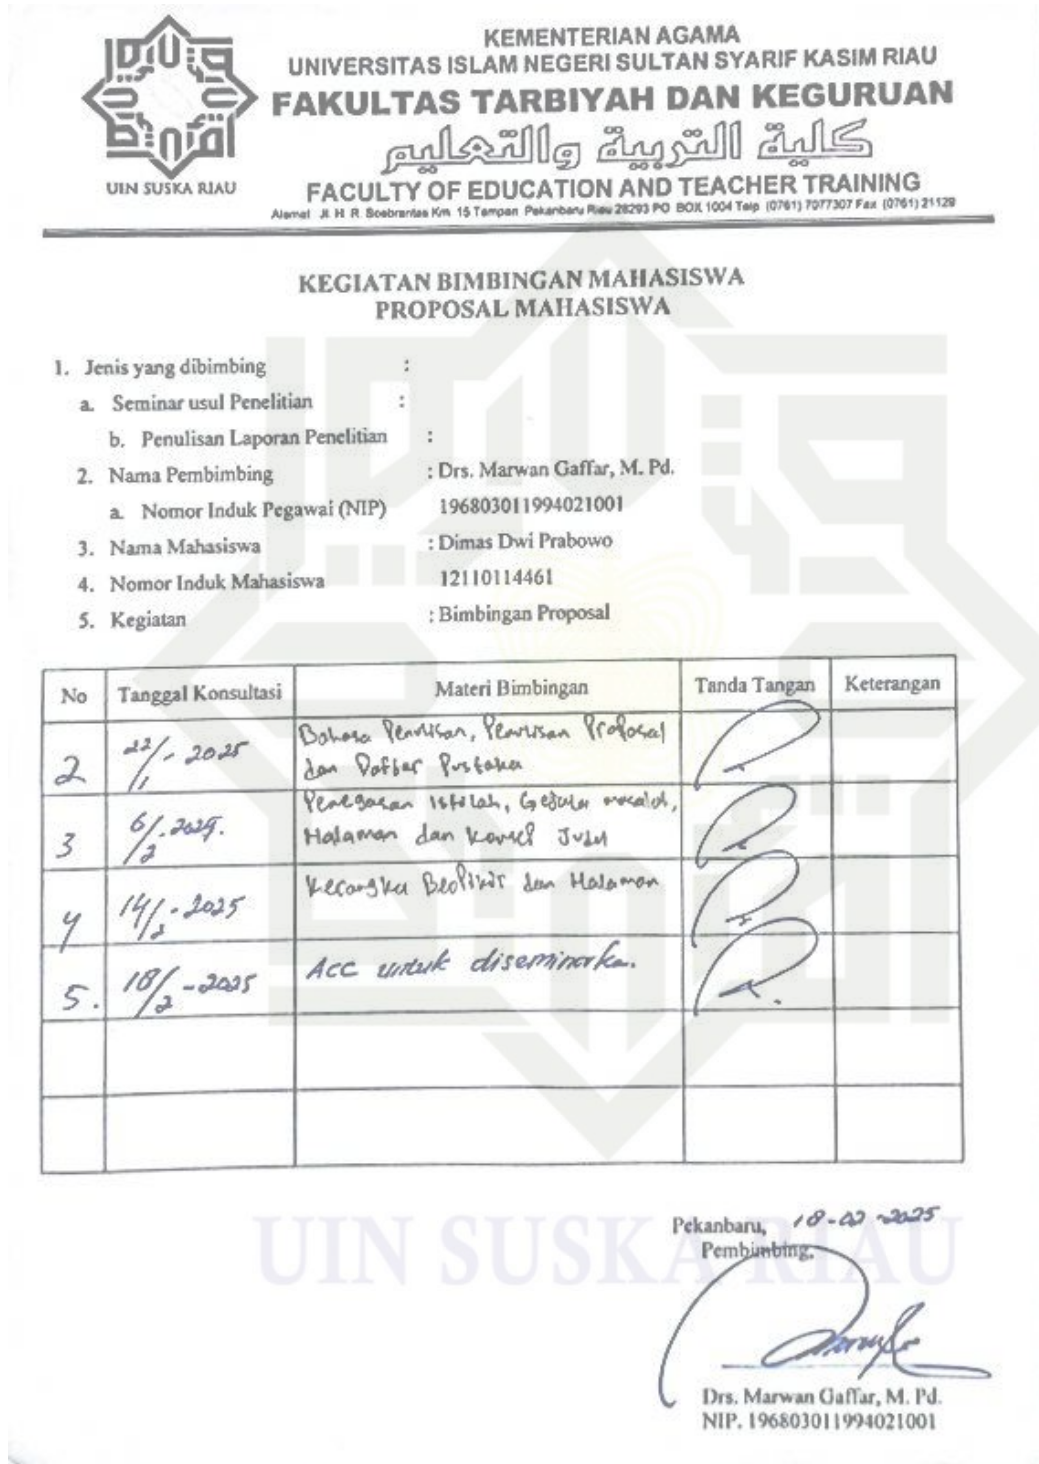 KEMENTERIAN AGAMA
UNIVERSITAS ISLAM NEGERI SULTAN SYARIF KASIM RIAU
FAKULTAS TARBIYAH DAN KEGURUAN
كلية التربية والتعليم
FACULTY OF EDUCATION AND TEACHER TRAINING
Alamat Jl. H. R. Soebrantas Km. 15 Tampan Pekanbaru Riau 28293 PO. BOX 1004 Telp. (0761) 7077307 Fax. (0761) 21129
UIN SUSKA RIAU
KEGIATAN BIMBINGAN MAHASISWA
PROPOSAL MAHASISWA
1. Jenis yang dibimbing :
a. Seminar usul Penelitian :
b. Penulisan Laporan Penelitian :
2. Nama Pembimbing : Drs. Marwan Gaffar, M. Pd.
a. Nomor Induk Pegawai (NIP) 196803011994021001
3. Nama Mahasiswa : Dimas Dwi Prabowo
4. Nomor Induk Mahasiswa 12110114461
5. Kegiatan : Bimbingan Proposal
No Tanggal Konsultasi Materi Bimbingan Tanda Tangan Keterangan
2 22/1 - 2025 Bahasa Penulisan, Penulisan Proposal
dan Daftar Pustaka
3 6/2 . 2025. Penegasan Istilah, Gejala masalah,
Halaman dan Judul
4 14/2 - 2025 Kerangka dan Halaman
5. 18/2 - 2025 Acc untuk diseminarka.
UIN SUSKA RIAU
Pekanbaru, 18-02-2025
Pembimbing,
Drs. Marwan Gaffar, M. Pd.
NIP. 196803011994021001